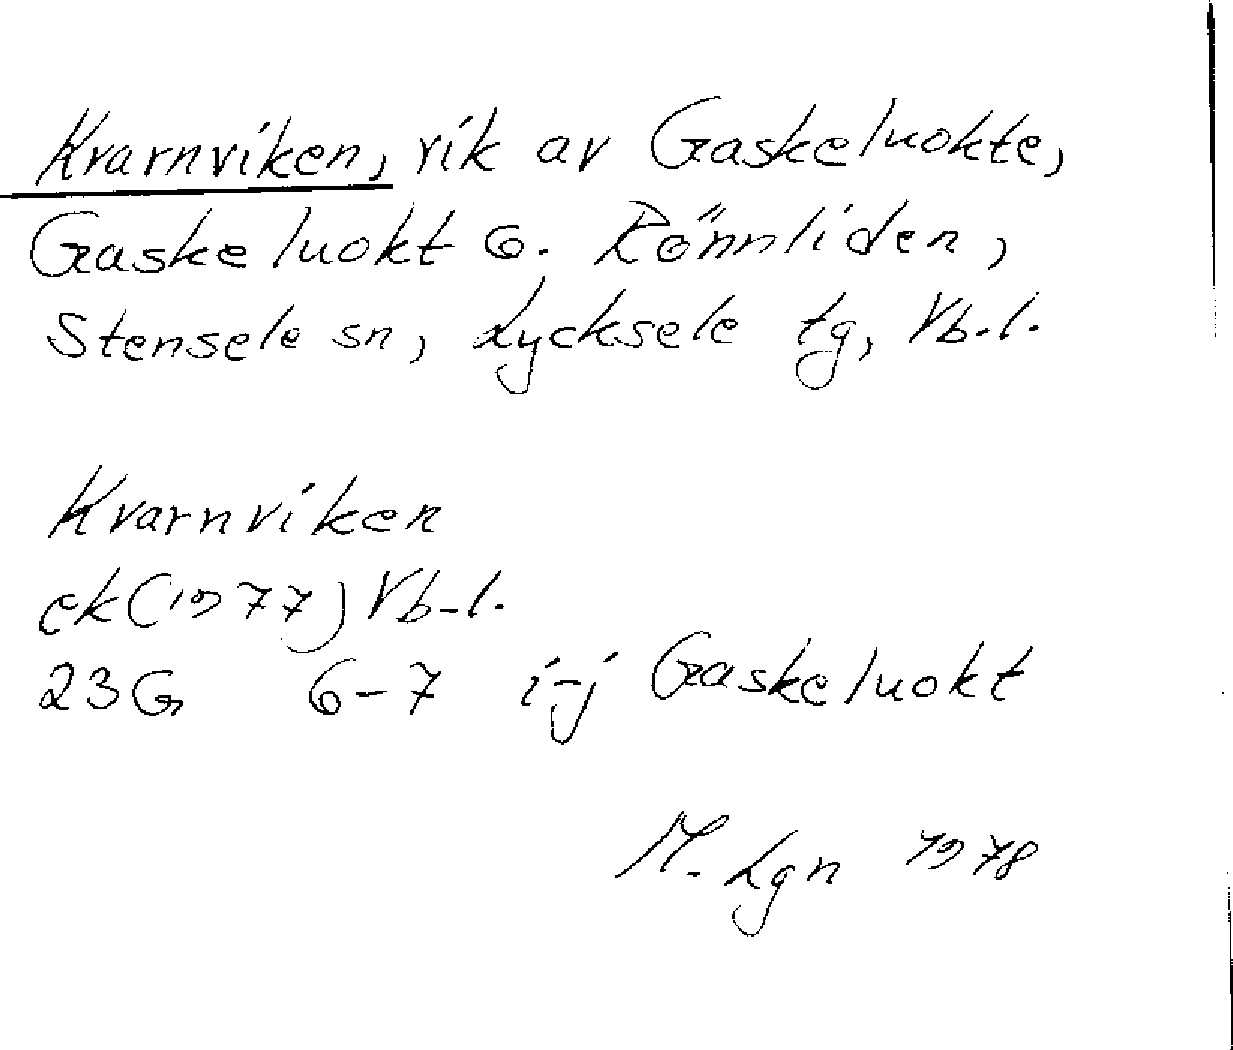 Kvarnviken, vik av Gaskeluokte,
Gaskeluokt o. Rönnliden,
Stensele sn, Lycksele tg, Vb-l.
Kvarnviken
ek (1977) Vb-l.
23G 6-7 i-j Gaskeluokt
M. Lgn 1978